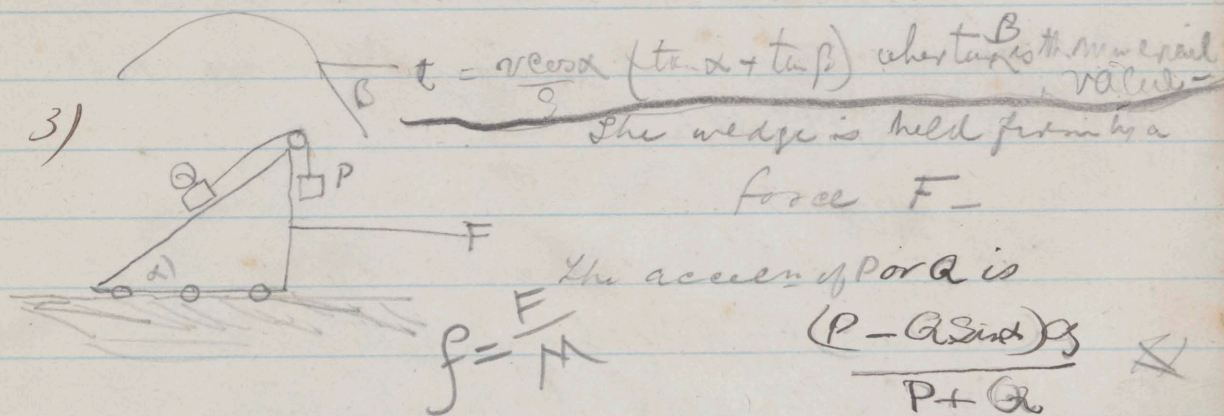 t = v cosα/g (tan α + tan β) where tan β is the numerical value -
B
3)
The wedge is held firm by a
force F -
Q
P
F
α)
The acceln of P or Q is
f = F/M
(P - Q Sin α)g / P + Q